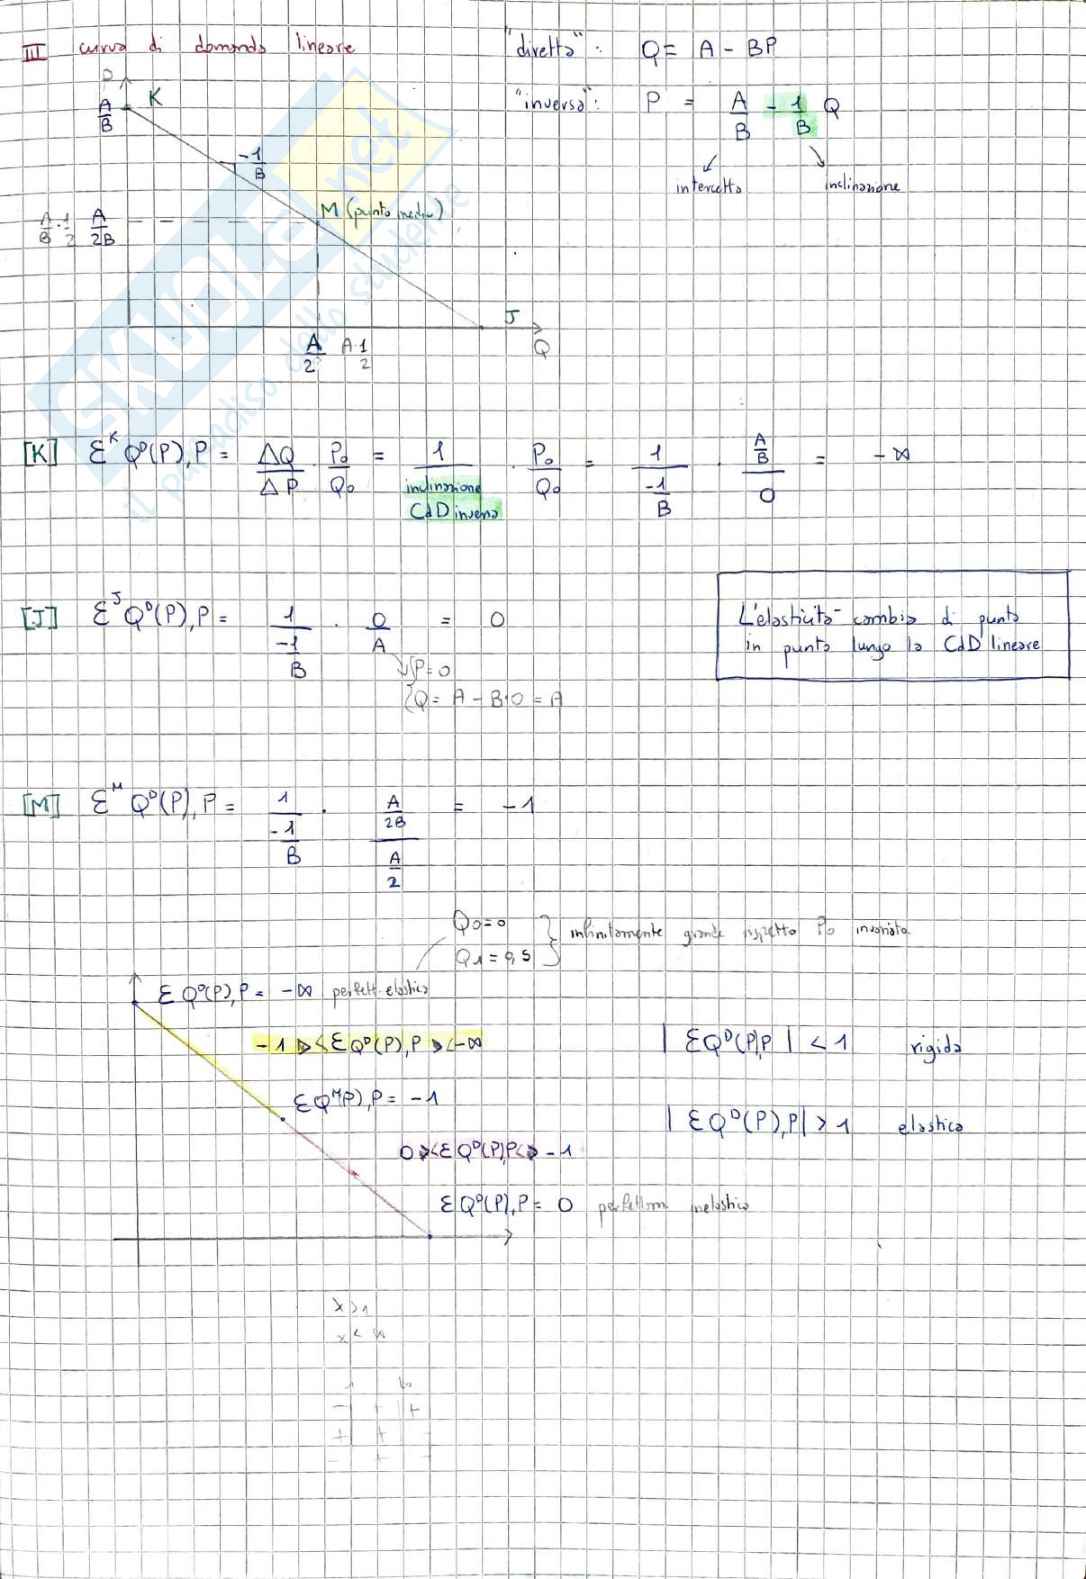 III curva di domanda lineare
"diretta": Q = A - BP
"inversa": P = A/B - 1/B Q
intercetta inclinazione
P
A/B K
-1/B
M (punto medio)
A/B · 1/2 A/2B
J
A/2 A·1/2 Q
SKUOLA.net
il paradiso dello studente
[K] Ɛᴷ Qᴰ(P),P = ΔQ/ΔP · P₀/Q₀ = 1/(inclinazione CdD inversa) · P₀/Q₀ = 1/(-1/B) · (A/B)/0 = -∞
[J] Ɛᴶ Qᴰ(P),P = 1/(-1/B) · 0/A = 0
{P = 0
{Q = A - B·0 = A
L'elasticità cambia di punto
in punto lungo la CdD lineare
[M] Ɛᴹ Qᴰ(P),P = 1/(-1/B) · (A/2B)/(A/2) = -1
Q₀ = 0
Q1 = 0,5
} infinitamente grande rispetto P₀ invariato
ƐQᴰ(P),P = -∞ perfett. elastica
-1 > < ƐQᴰ(P),P > < -∞
|ƐQᴰ(P),P| < 1 rigida
ƐQᴹ(P),P = -1
|ƐQᴰ(P),P| > 1 elastica
0 > < ƐQᴰ(P),P < > -1
ƐQᴰ(P),P = 0 perfettam inelastica
x > 1
x <
- + +
+ +
- +